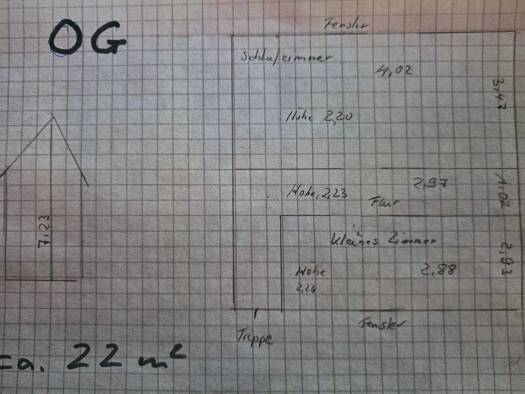 OG
Fenster
Schlafzimmer
4,02
3,47
Höhe 2,20
7,23
Höhe, 2,23
2,97
Flur
1,02
Kleines Zimmer
2,93
Höhe
2,88
Fenster
Treppe
ca. 22 m²